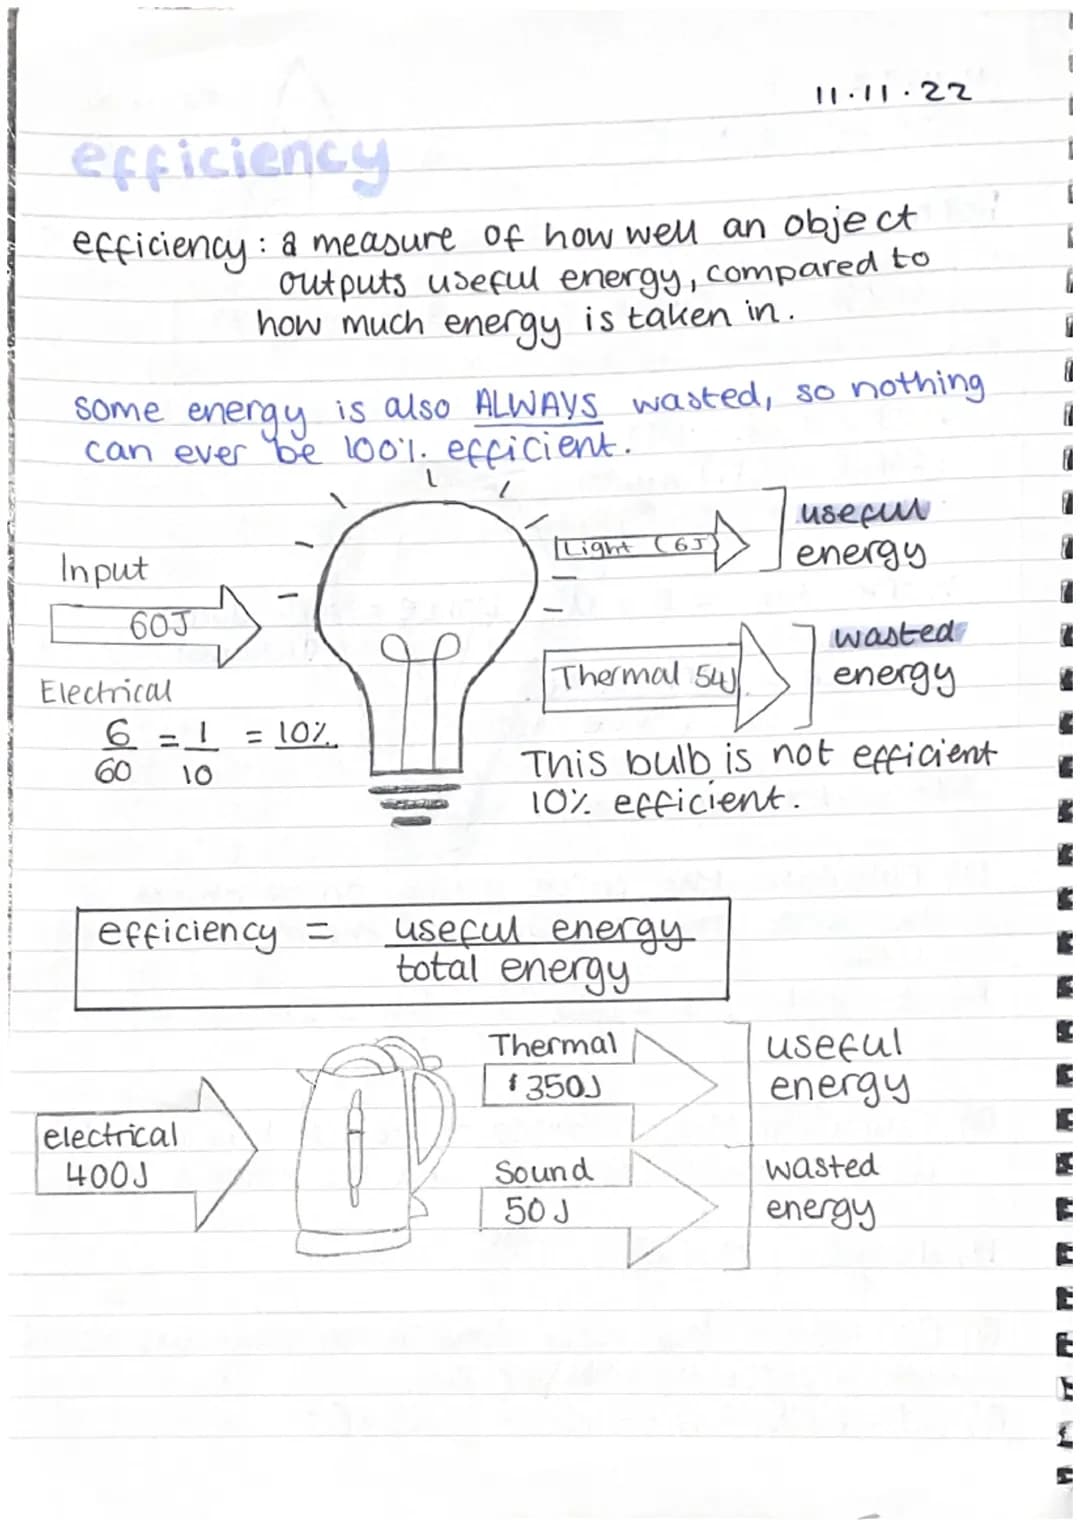 11.11.22
efficiency
efficiency: a measure of how well an object
outputs useful energy, compared to
how much energy is taken in.
some energy is also ALWAYS wasted, so nothing
can ever be 100% efficient.
Input
60J
Electrical
6/60 = 1/10 = 10%
Light (6J)
useful
energy
Thermal 54J
wasted
energy
This bulb is not efficient
10% efficient.
efficiency = useful energy
total energy
electrical
400J
Thermal
350J
useful
energy
Sound
50J
wasted
energy